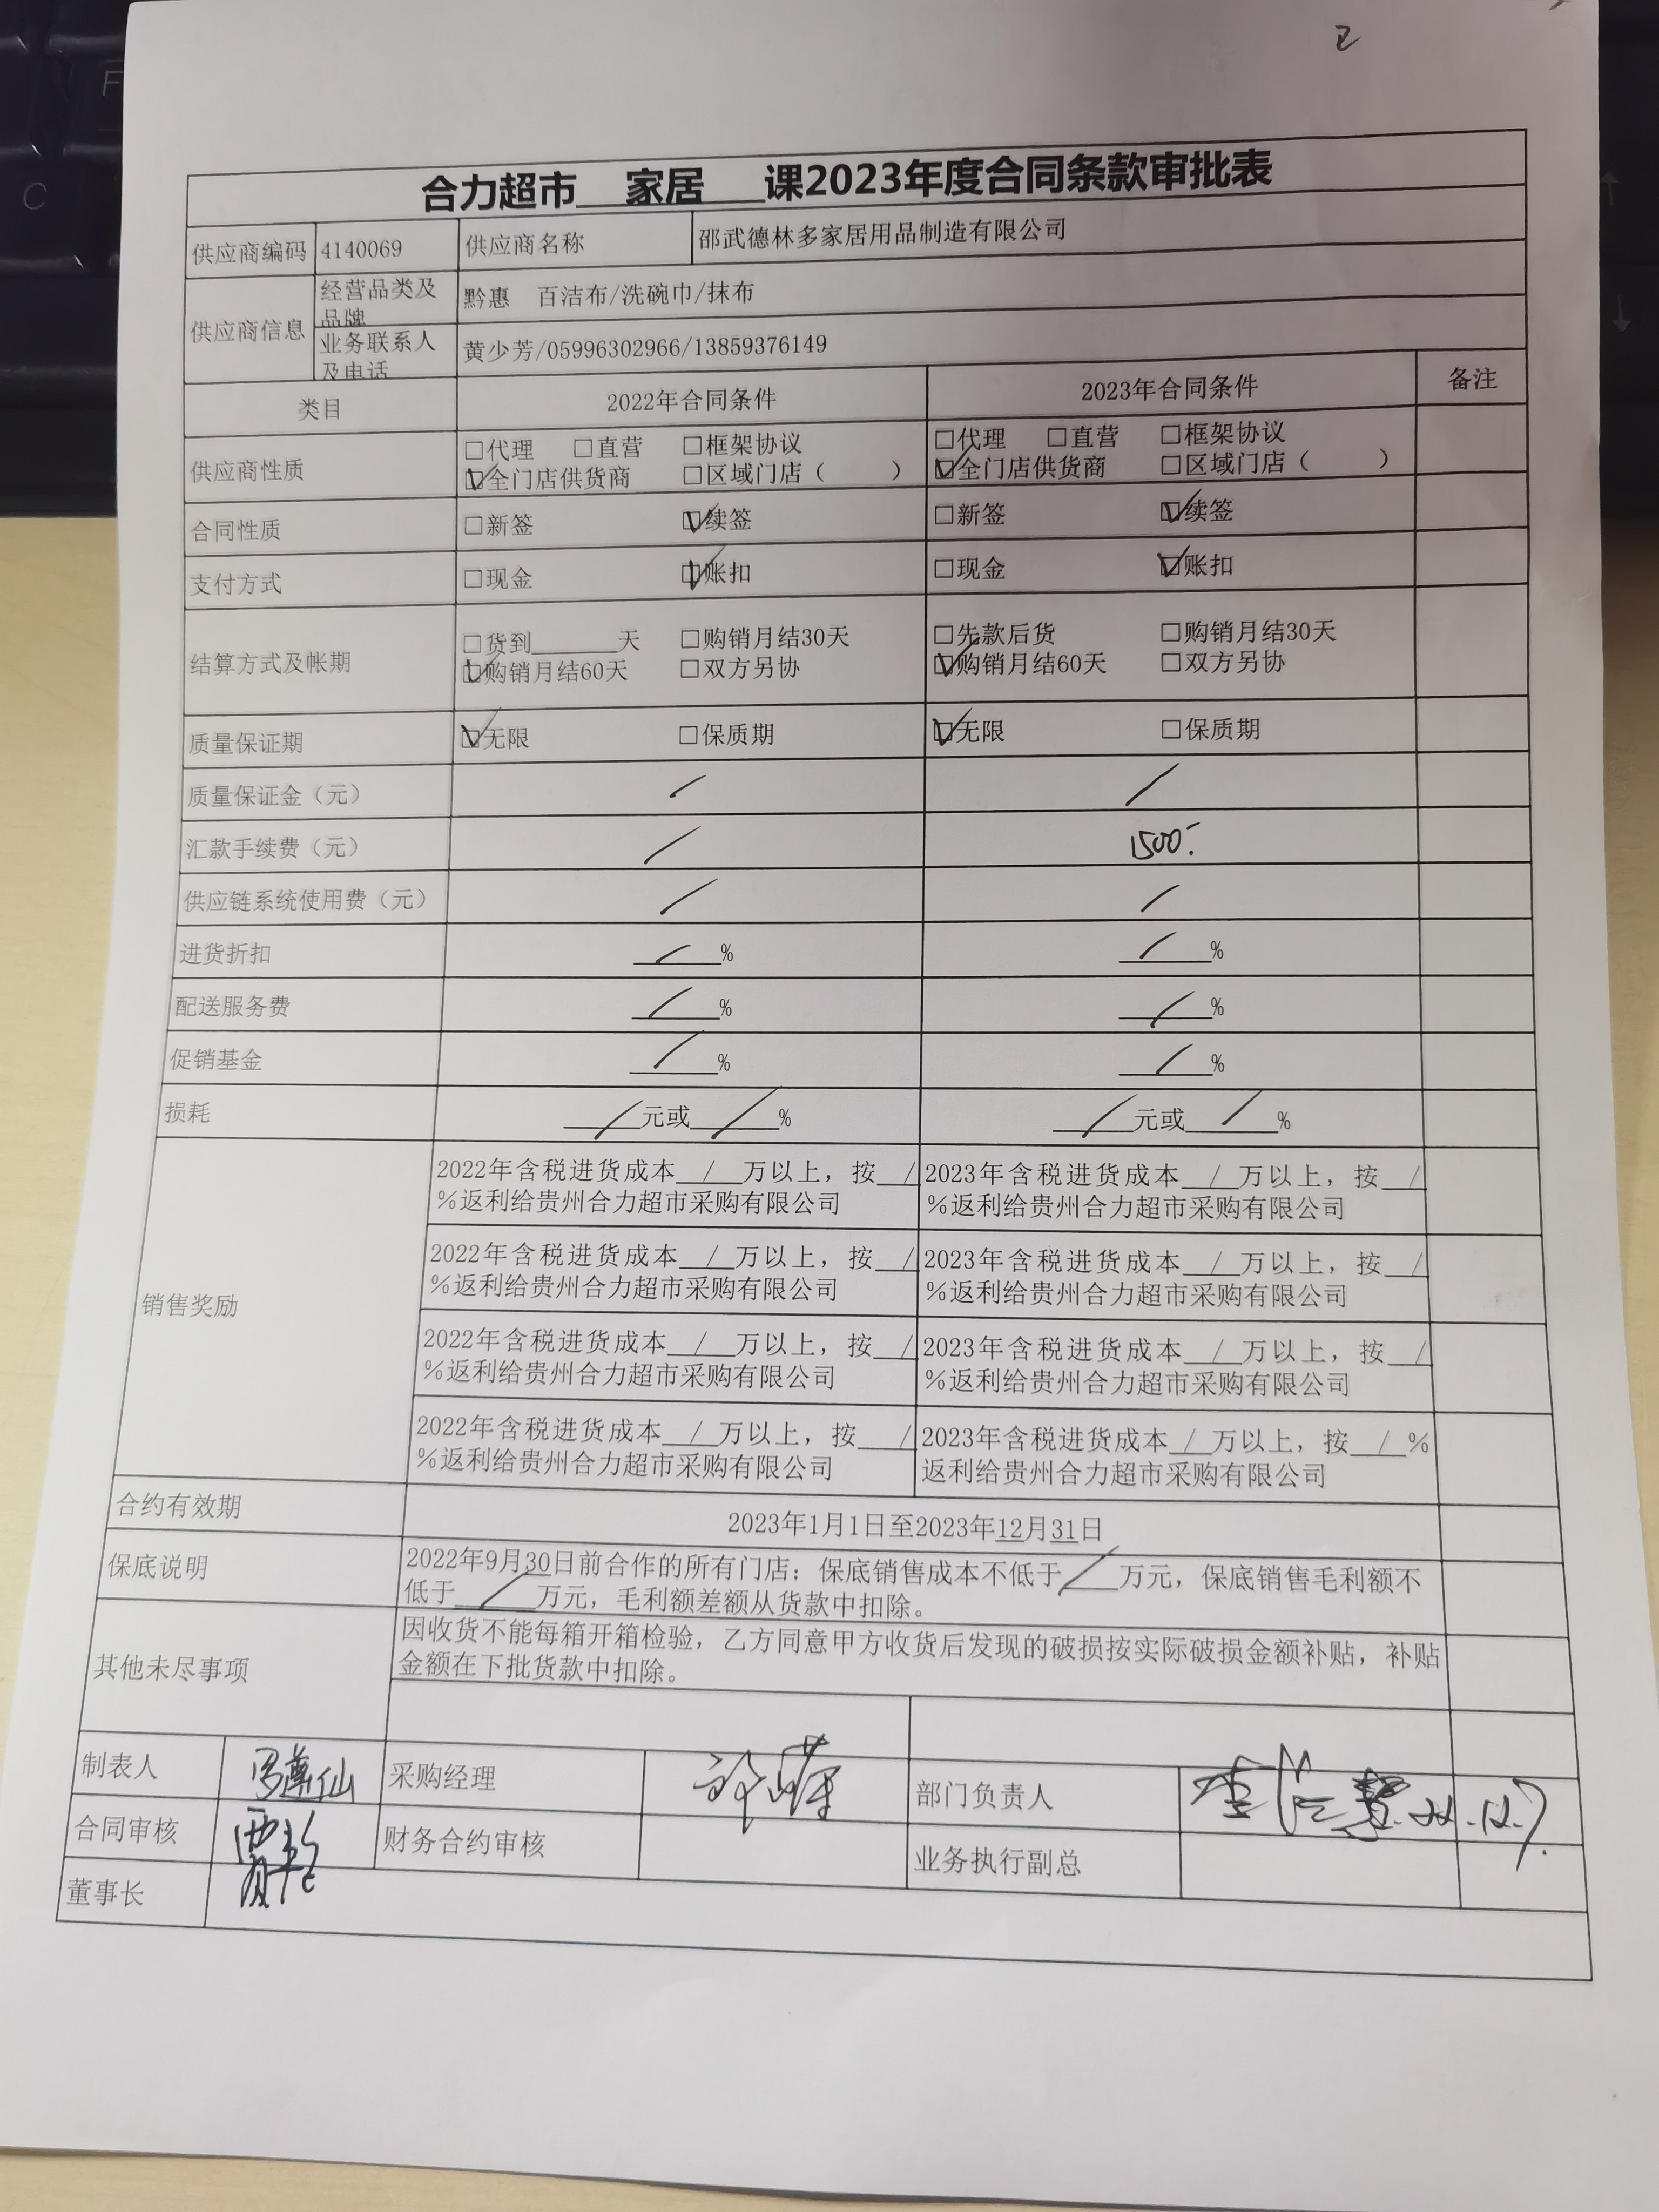 合力超市 家居 课2023年度合同条款审批表
供应商编码 4140069 供应商名称 邵武德林多家居用品制造有限公司
供应商信息 经营品类及品牌 黔惠 百洁布/洗碗巾/抹布
业务联系人及电话 黄少芳/05996302966/13859376149
类目 2022年合同条件 2023年合同条件 备注
供应商性质 □代理 □直营 □框架协议 □代理 □直营 □框架协议
☑全门店供货商 □区域门店( ) ☑全门店供货商 □区域门店( )
合同性质 □新签 ☑续签 □新签 ☑续签
支付方式 □现金 ☑账扣 □现金 ☑账扣
结算方式及帐期 □货到______天 □购销月结30天 □先款后货 □购销月结30天
☑购销月结60天 □双方另协 ☑购销月结60天 □双方另协
质量保证期 ☑无限 □保质期 ☑无限 □保质期
质量保证金（元） / /
汇款手续费（元） / 1500.-
供应链系统使用费（元） / /
进货折扣 / % / %
配送服务费 / % / %
促销基金 / % / %
损耗 / 元或 / % / 元或 / %
销售奖励
2022年含税进货成本 / 万以上，按 / %返利给贵州合力超市采购有限公司 2023年含税进货成本 / 万以上，按 / %返利给贵州合力超市采购有限公司
2022年含税进货成本 / 万以上，按 / %返利给贵州合力超市采购有限公司 2023年含税进货成本 / 万以上，按 / %返利给贵州合力超市采购有限公司
2022年含税进货成本 / 万以上，按 / %返利给贵州合力超市采购有限公司 2023年含税进货成本 / 万以上，按 / %返利给贵州合力超市采购有限公司
2022年含税进货成本 / 万以上，按 / %返利给贵州合力超市采购有限公司 2023年含税进货成本 / 万以上，按 / %返利给贵州合力超市采购有限公司
合约有效期 2023年1月1日至2023年12月31日
保底说明 2022年9月30日前合作的所有门店：保底销售成本不低于 / 万元，保底销售毛利额不
低于 / 万元，毛利额差额从货款中扣除。
其他未尽事项 因收货不能每箱开箱检验，乙方同意甲方收货后发现的破损按实际破损金额补贴，补贴
金额在下批货款中扣除。
制表人 采购经理 部门负责人
合同审核 财务合约审核 业务执行副总
董事长